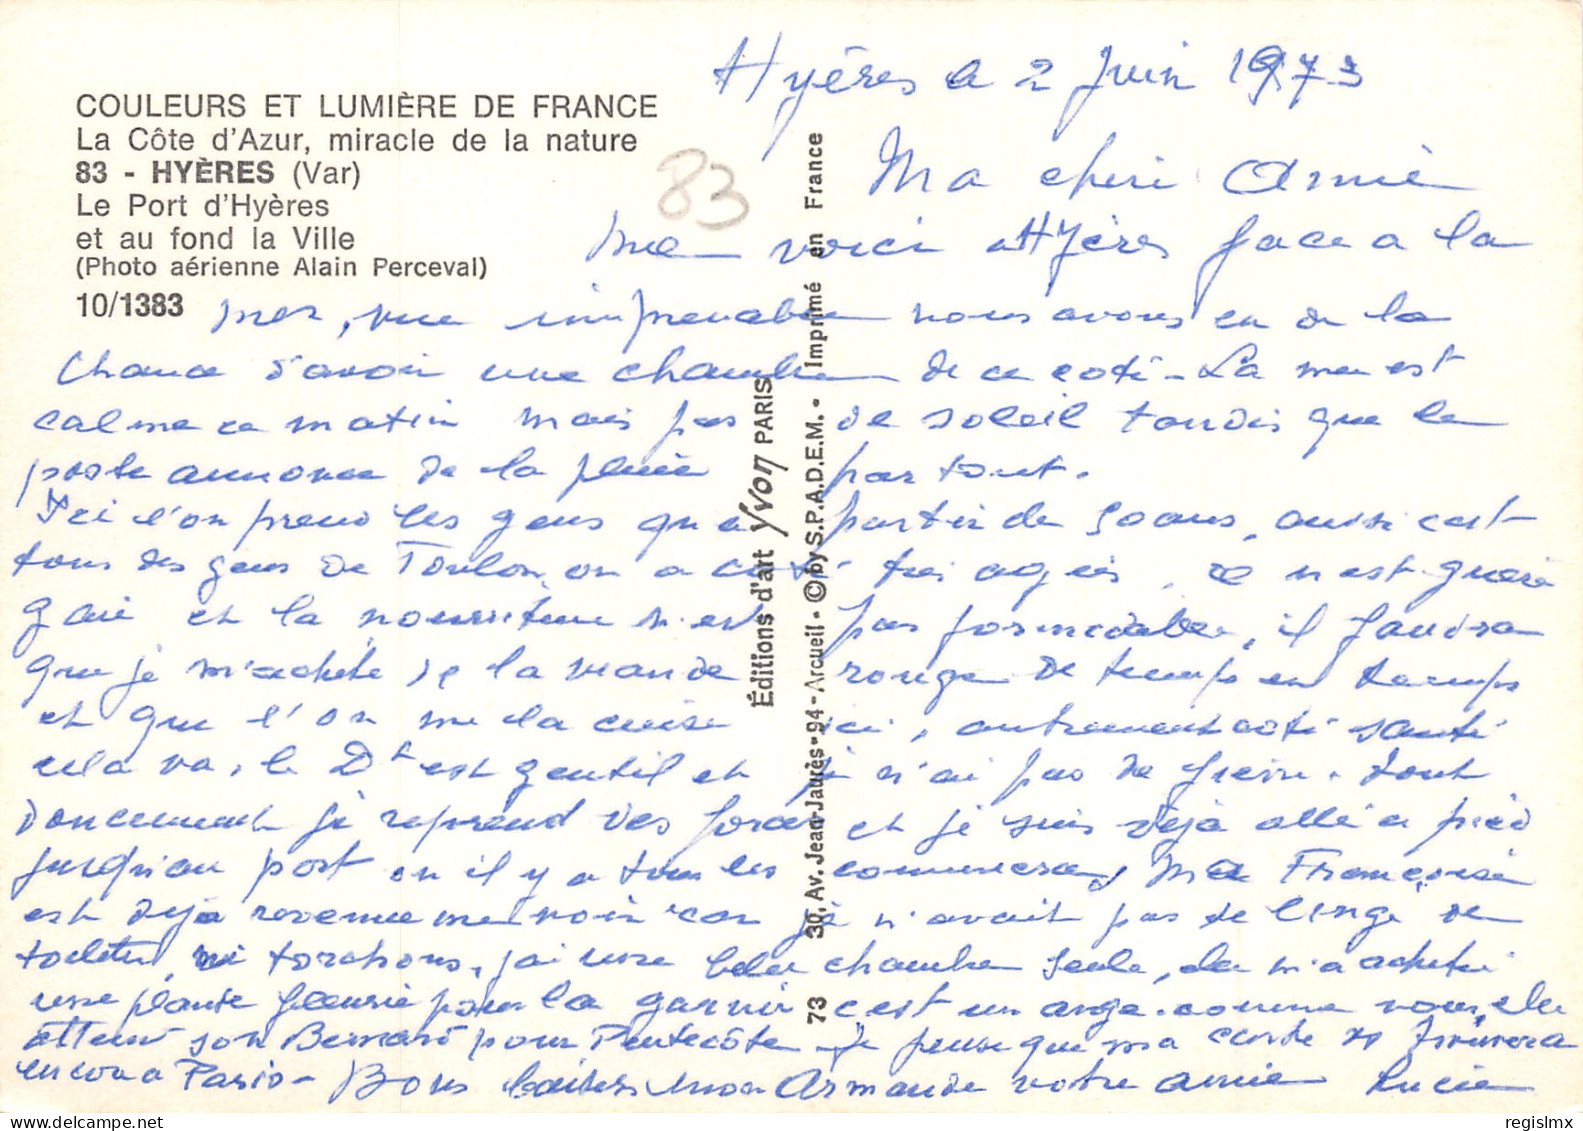 Hyères le 2 Juin 1973
COULEURS ET LUMIÈRE DE FRANCE
La Côte d'Azur, miracle de la nature
83 - HYÈRES (Var)
Le Port d'Hyères
et au fond la Ville
(Photo aérienne Alain Perceval)
10/1383
83
Ma chéri Amie
me voici a Hyères face a la
mer, vue imprenable nous avons eu de la
chance d'avoir une chambre de ce coté - La mer est
calme ce matin mais pas de soleil tandis que le
poste annonce de la pluie partout.
Ici l'on prend les gens qu'a partir de 50 ans, aussi c'est
tous des gens de Toulon, on a coté très agés, ce n'est guère
gaie et la nourriture n'est pas formidable, il faudra
que je m'achète de la viande rouge de temps en temps
et que l'on me la cuise ici, autrement coté santé
cela va, le Dr est gentil et je n'ai pas de fièvre. tout
doucement je reprend des forces et je suis déjà allé a pied
jusqu'au port ou il y a tous les commerces, Ma Françoise
est déja revenue me voir car je n'avait pas de linge de
toilette, ni torchons, j'ai une belle chambre seule, elle m'a acheté
une plante fleurie pour la garnir c'est un ange. comme vous, elle
attend son Bernard pour Pentecôte - Je pense que ma carte vs trouvera
encore a Paris - Bons baisers mon Armande votre amie Lucie
Éditions d'art Yvon PARIS
30, Av. Jean-Jaurès - 94 - Arcueil • © by S.P.A.D.E.M. • Imprimé en France
73
regislmx